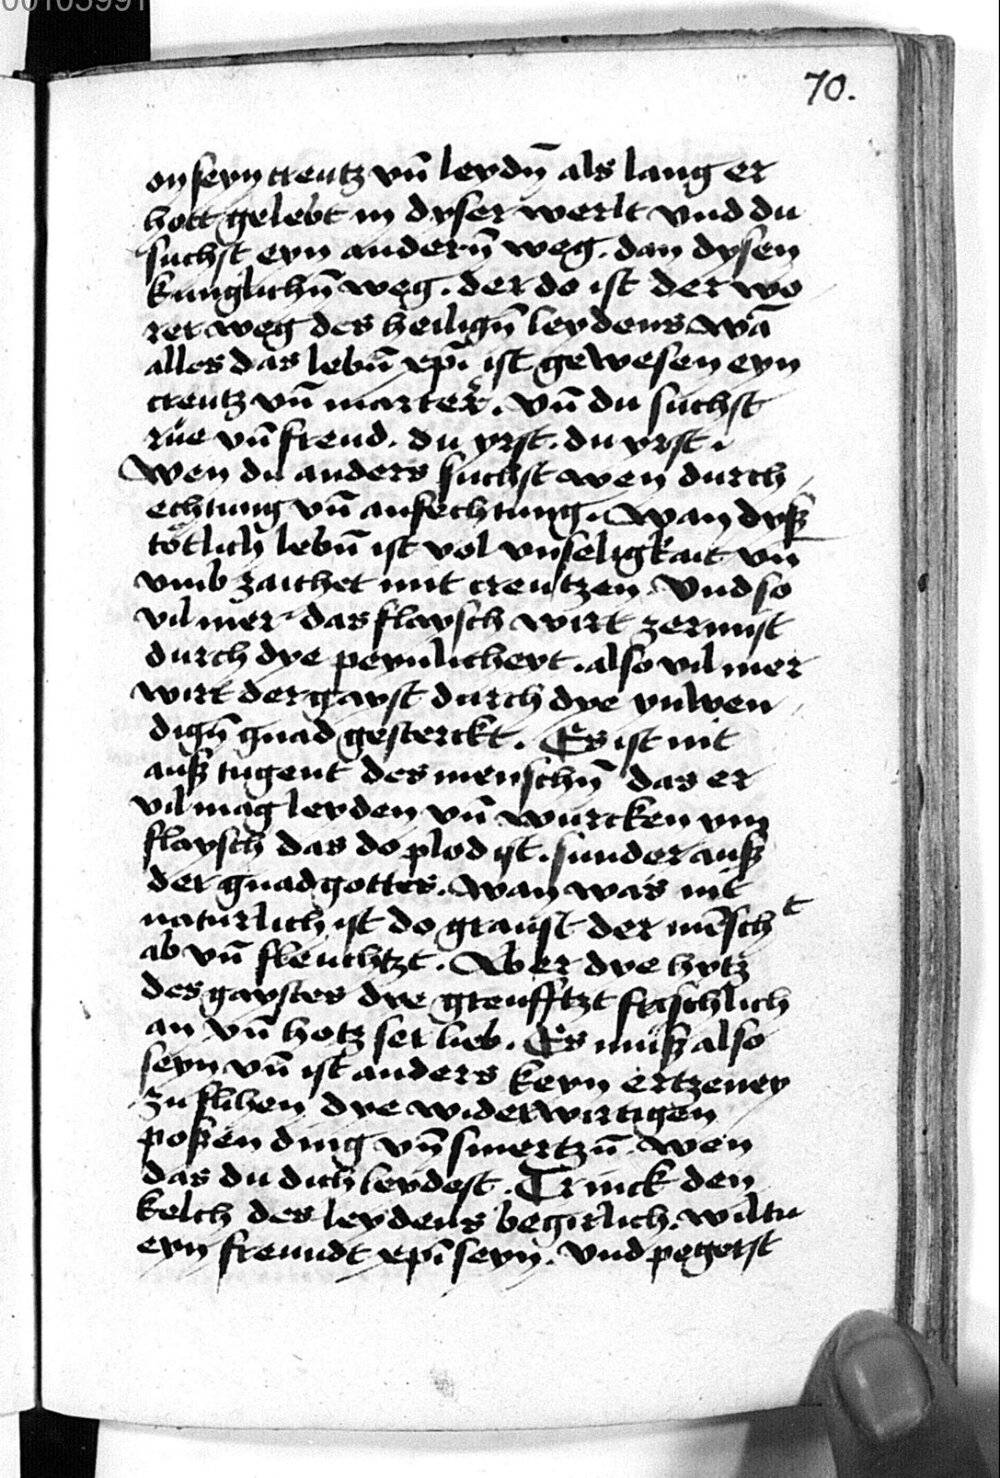 00105991
70.
on seyn creutz vn̄ leydn̄ als lang er
hott gelebt in dyser werlt vnd du
suchst eyn andern̄ weg. dan dysen
kunglichn̄ weg. der do ist der wo
rer weg des heilign̄ leydens wā
alles das lebn̄ xp̄i ist gewesen eyn
creutz vn̄ marter. vn̄ du suchst
rue vn̄ freud. du yrst. du yrst.
Wen du anders suchst wen durch
echtung vn̄ anfechtung. Wan dyß
tötlich lebn̄ ist vol vnseligkait vn̄
vmb zaichet mit creutzen. Vnd so
vil mer das flaysch wirt zernust
durch dye peynlicheyt. also vil mer
wirt der gayst durch dye ynwen
dign̄ gnad gesterckt. Es ist nit
auß tugent des menschn̄ das er
vil mag leyden vn̄ wurcken ym
flaysch das do plod ist. sunder auß
der gnad gottes. Wan was nit
naturlich ist do graust der mēsch t
ab vn̄ fleuchtzt. Aber dye hytz
des gaystes dye greufftzt frischlich
an vn̄ hotz ser lieb. Es muß also
seyn vn̄ ist anders keyn ertzeney
zu flihen dye widerwirtigen
poßen ding vn̄ smertzn̄. wen
das du dich leydest. Trinck den
kelch des leydens begirlich. wiltu
eyn freundt xp̄i seyn. Vnd pegerst